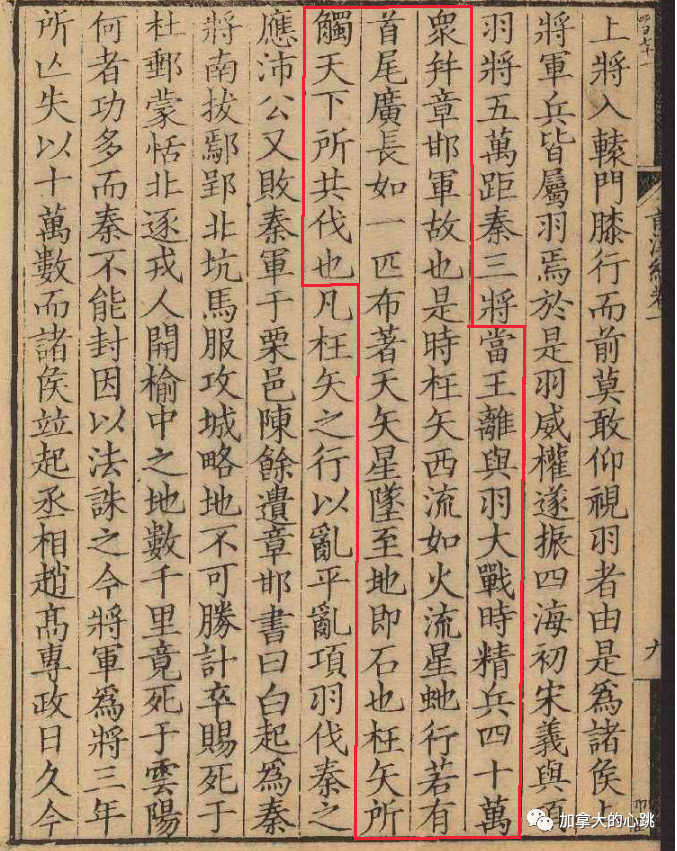 上將入轅門膝行而前莫敢仰視羽者由是爲諸侯上
將軍兵皆屬羽焉於是羽威權遂振四海初宋義與項
羽將五萬距秦三將當王離與羽大戰時精兵四十萬
衆幷章邯軍故也是時枉矢西流如火流星虵行若有
首尾廣長如一匹布著天矢星墜至地即石也枉矢所
觸天下所共伐也凡枉矢之行以亂平亂項羽伐秦之
應沛公又敗秦軍于栗邑陳餘遺章邯書曰白起爲秦
將南拔鄢郢北坑馬服攻城略地不可勝計卒賜死于
杜郵蒙恬北逐戎人開榆中之地數千里竟死于雲陽
何者功多而秦不能封因以法誅之今將軍爲將三年
所亾失以十萬數而諸侯竝起丞相趙高專政日久今
九
加拿大的心跳